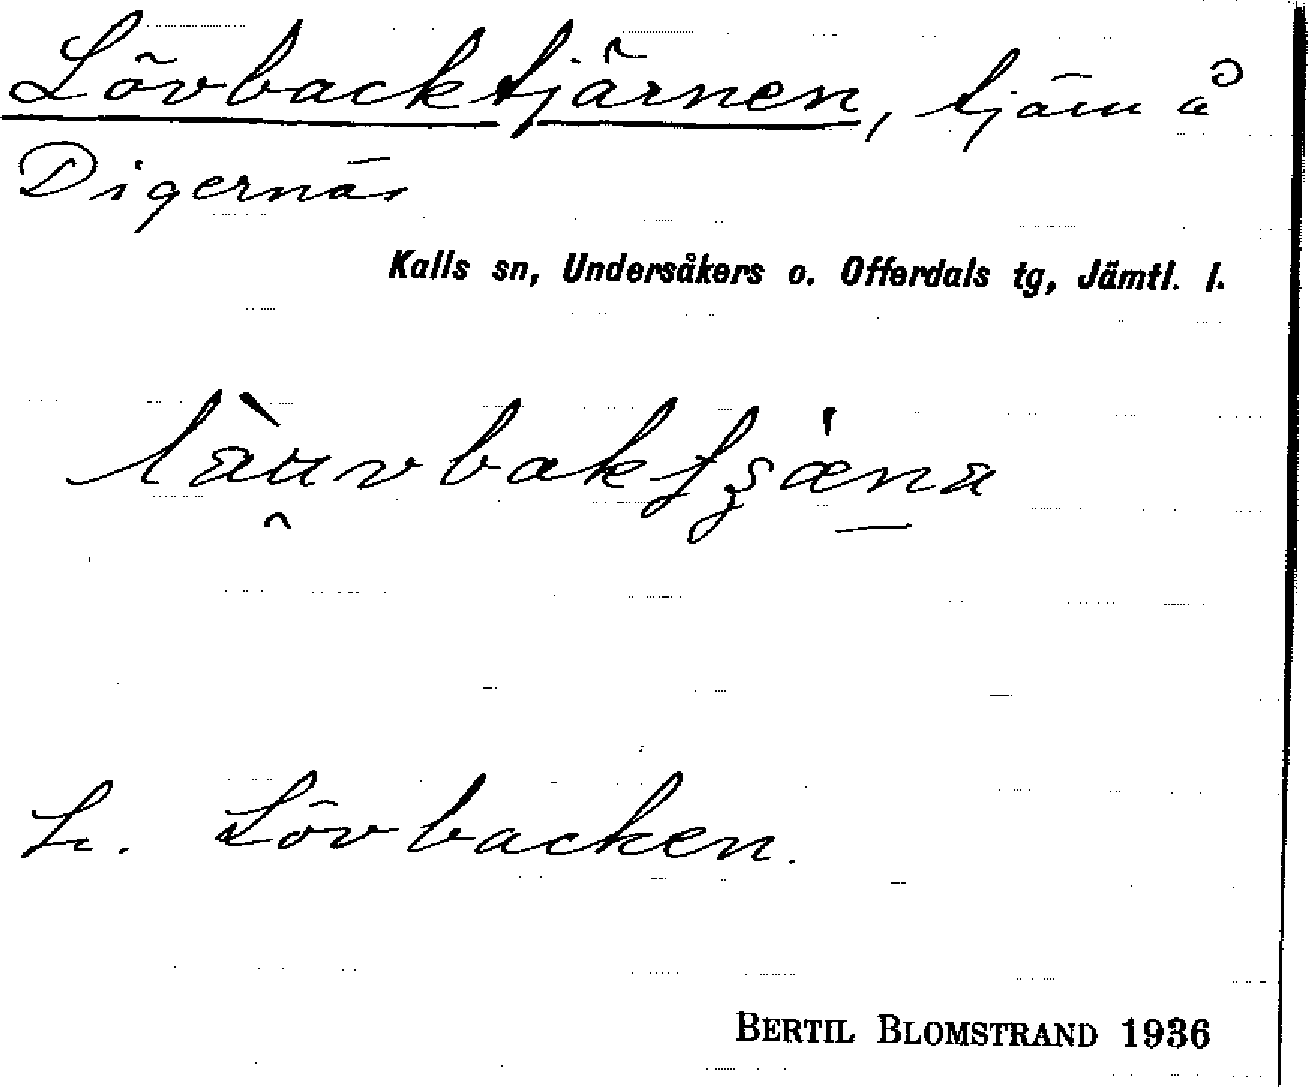 Lövbacktjärnen, tjärn å
Digernäs
Kalls sn, Undersåkers o. Offerdals tg, Jämtl. l.
Lövbacken.
BERTIL BLOMSTRAND 1936